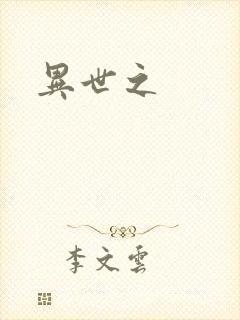 異世之
李文雲